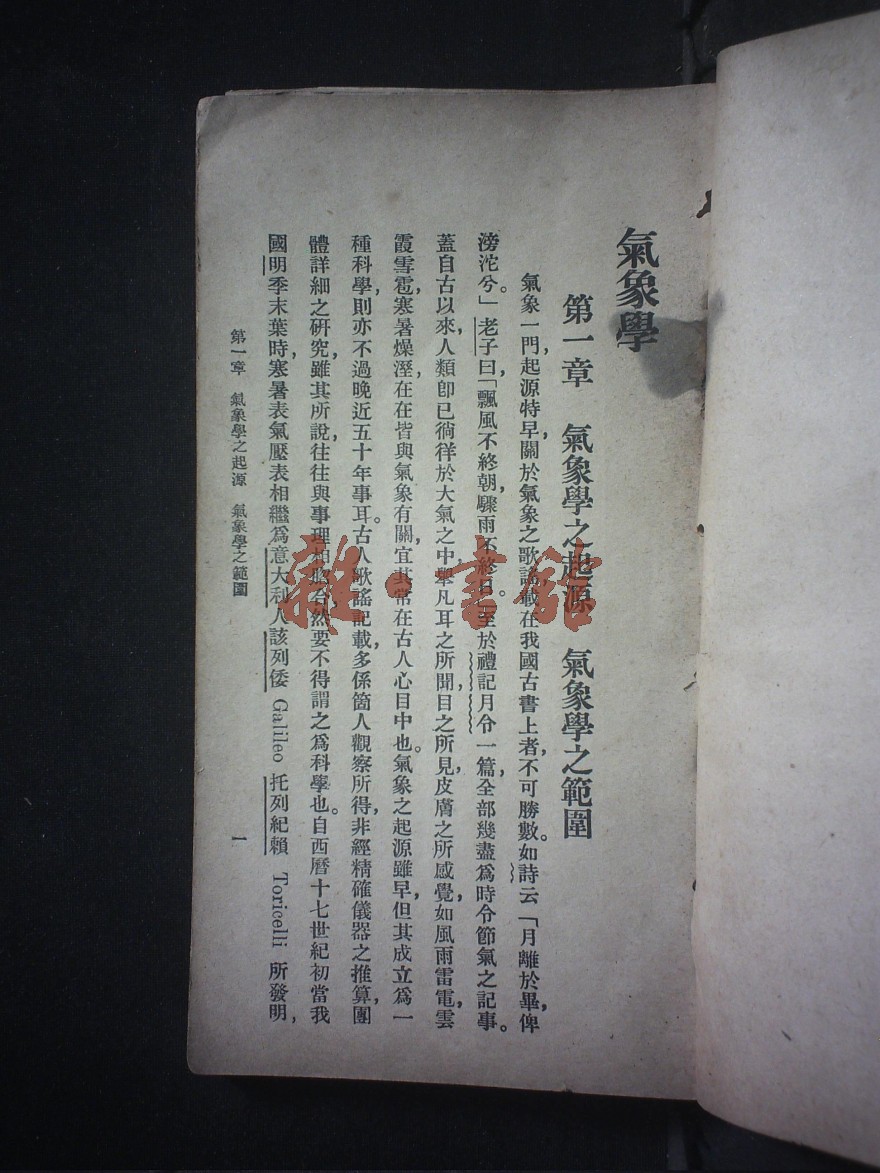 氣象學
第一章　氣象學之起源　氣象學之範圍
氣象一門，起源特早，關於氣象之歌謠，載在我國古書上者，不可勝數。如詩云「月離於畢，俾
滂沱兮。」老子曰：「飄風不終朝，驟雨不終日。」至於禮記月令一篇，全部幾盡爲時令節氣之記事。
蓋自古以來，人類卽已徜徉於大氣之中，舉凡耳之所聞，目之所見，皮膚之所感覺，如風雨雷電雲
霞雪雹，寒暑燥溼，在在皆與氣象有關，宜其常在古人心目中也。氣象之起源雖早，但其成立爲一
種科學，則亦不過晚近五十年事耳。古人歌謠記載，多係箇人觀察所得，非經精確儀器之推算，團
體詳細之硏究，雖其所說，往往與事理相脗合，然要不得謂之爲科學也。自西曆十七世紀初，當我
國明季末葉時，寒暑表氣壓表相繼爲意大利人該列倭 Galileo 托列紀賴 Toricelli 所發明，
第一章　氣象學之起源　氣象學之範圍
一
雜·書館